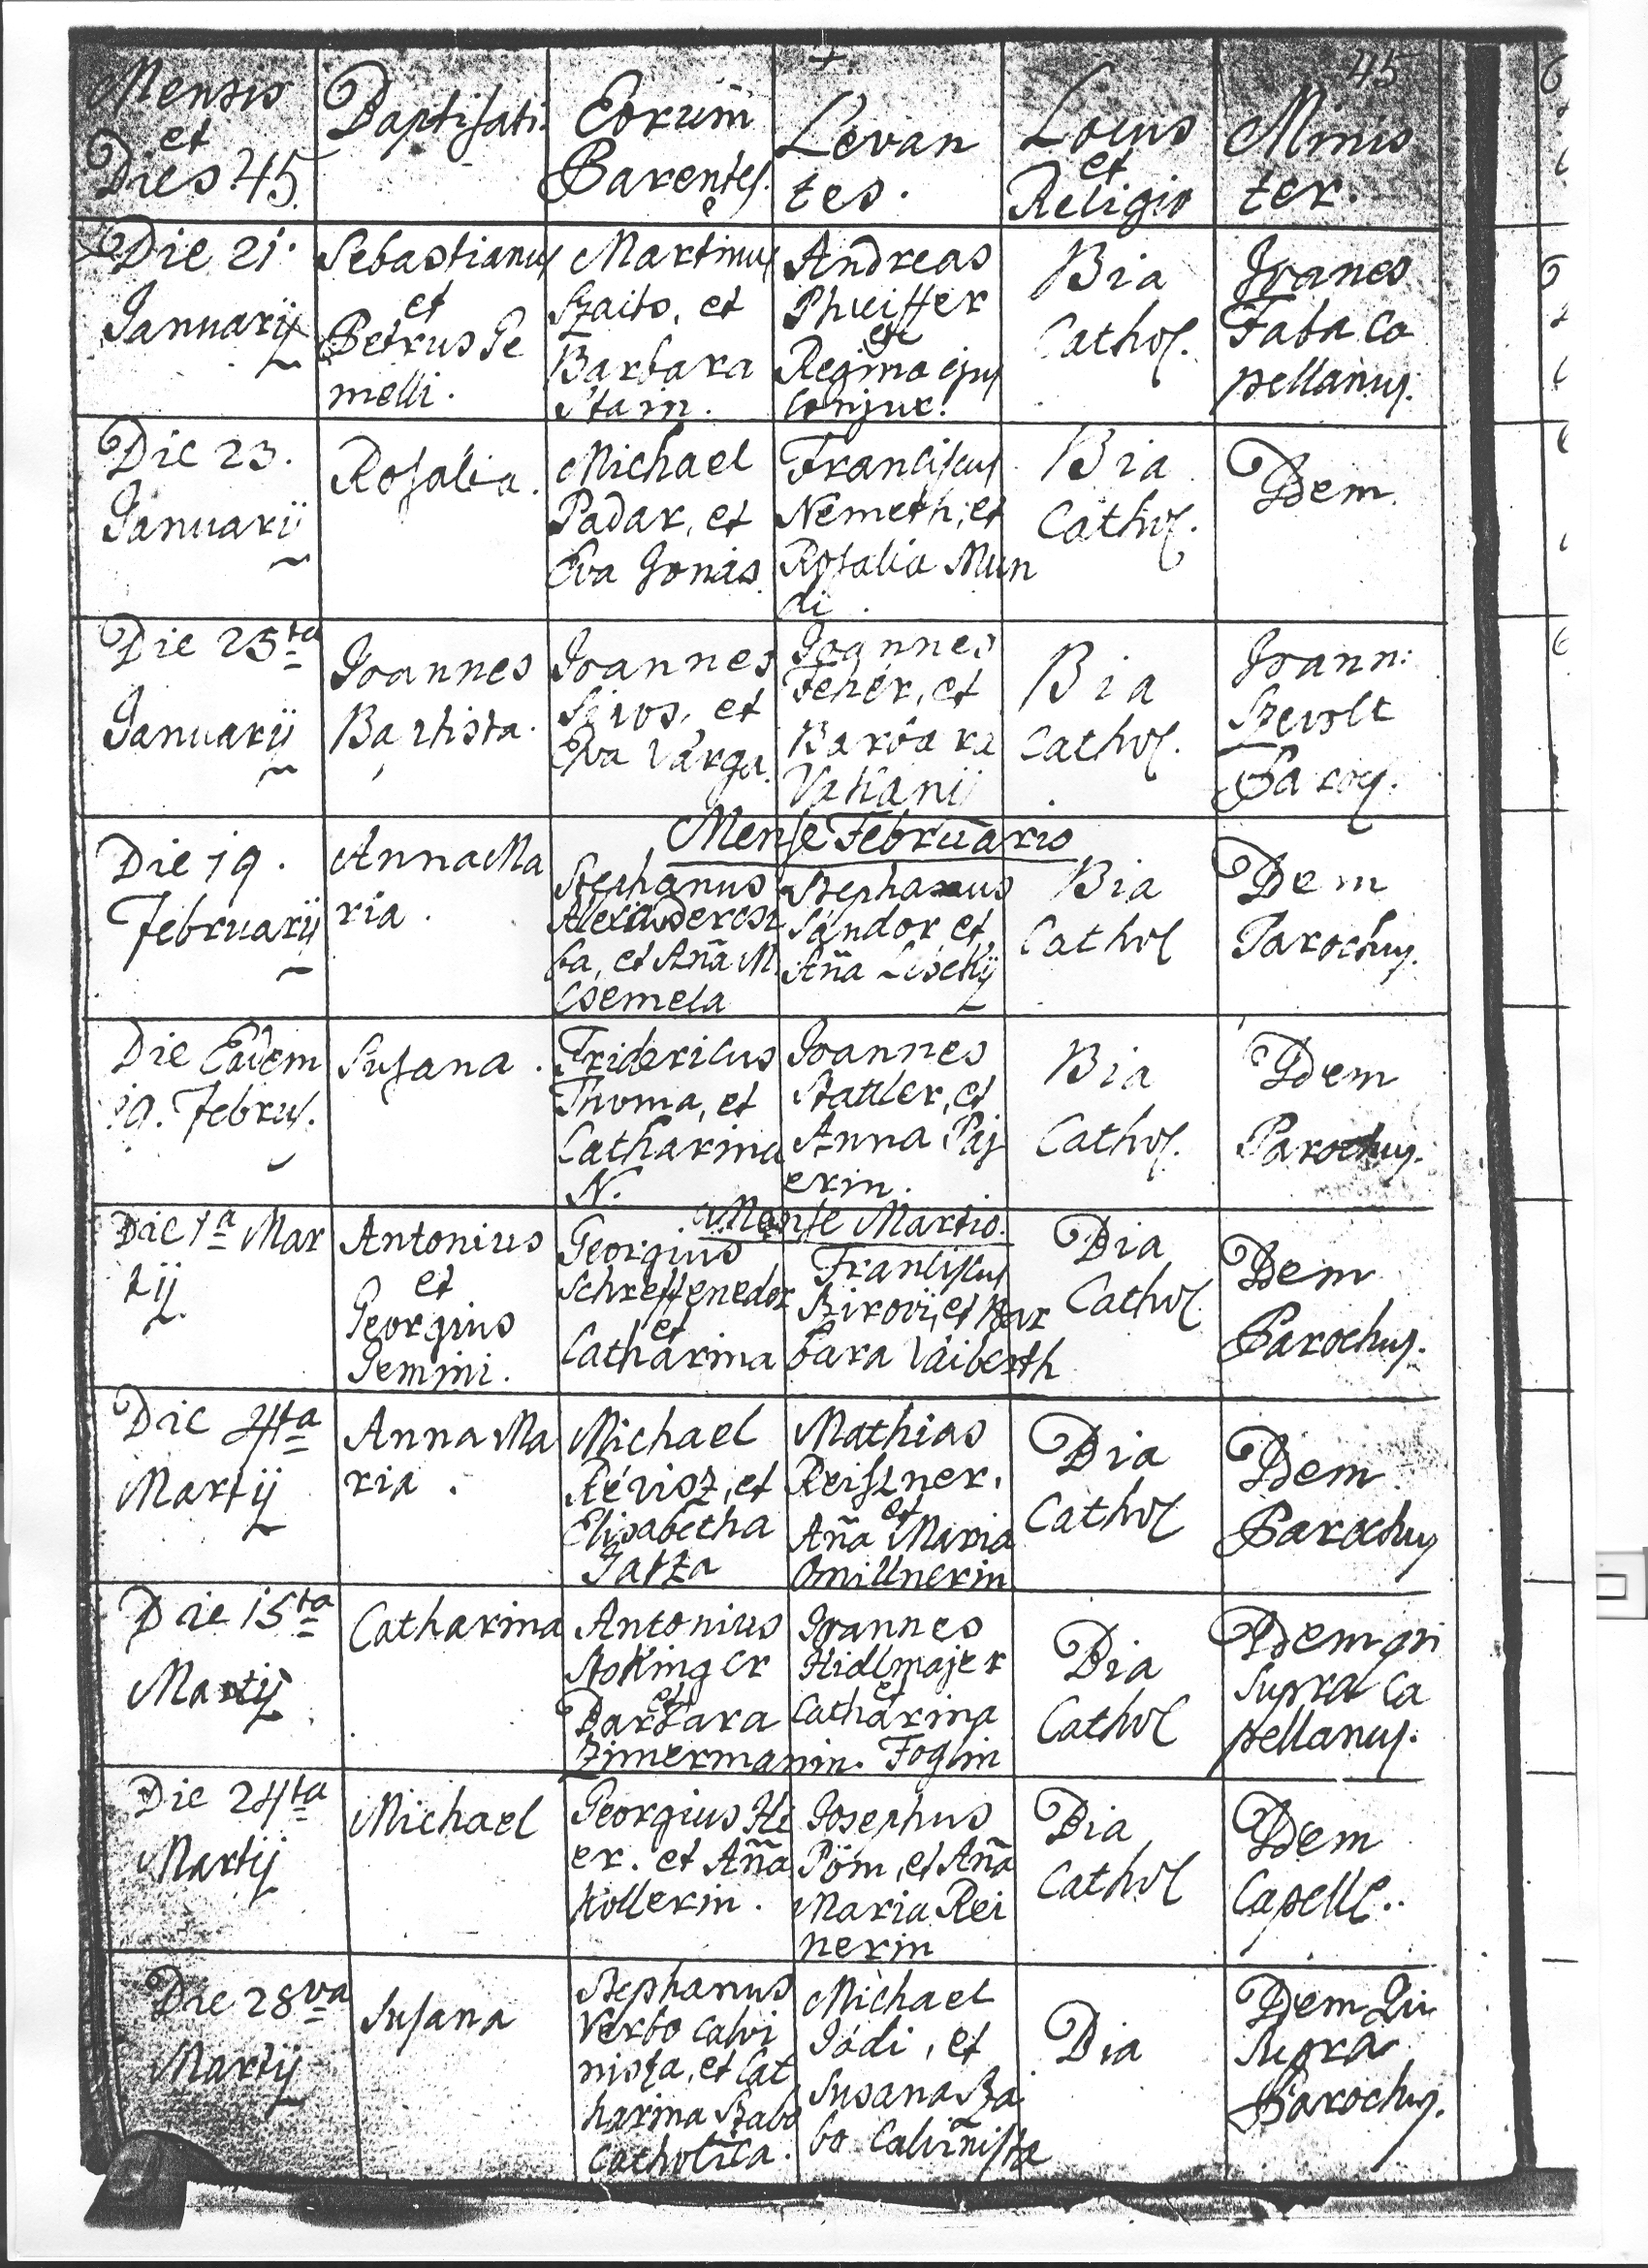 45
Mensis
et
Dies 45.
Baptisati.
Eorum
Parentes.
Levan
tes.
Locus
et
Religio
Minis
ter.
Die 21.
Januarij
Sebastianus
et
Petrus Ge
melli.
Martinus
Szaits, et
Barbara
Stam.
Andreas
Phueiffer
et
Regina ejus
Conjux.
Bia
Cathol.
Joanes
Faba Ca
pellanus.
Die 23.
Januarij
Rosalia.
Michael
Padar, et
Eva Jonas.
Franciscus
Nemeth, et
Rosalia Mun
di.
Bia
Cathol.
Idem.
Die 25ta
Januarij
Joannes
Baptista.
Joannes
Siros, et
Eva Varga.
Joannes
Fehér, et
Barbara
Bia
Cathol.
Joann:
Szevolt
Paroch.
Mense Februario
Die 19.
Februarij
Anna Ma
ria.
Stephanus
et Aña M.
Csemela
Stephanus
Sándor et
Aña Liseky
Bia
Cathol
Idem
Parochus.
Die Eadem
19. Februs.
Susana.
Fridericus
Thoma, et
Catharina
N.
Joannes
Stattler, et
Anna Paj
erin.
Bia
Cathol.
Idem
Parochus.
Mense Martio.
Die 1a Mar
tij.
Antonius
et
Georgius
Gemini.
Georgius
Schreffenedor
et
Catharina
Franciscus
Biroui, et Bar
bara Vaiberth
Bia
Cathol.
Idem
Parochus.
Die 4ta
Martij
Anna Ma
ria.
Michael
Révisz, et
Elisabetha
Gatza
Mathias
Reiszner,
et
Aña Maria
Omillnerin
Bia
Cathol
Idem
Parochus
Die 15ta
Martij
Catharina
Antonius
Stokinger
et
Barbara
Zimermanin.
Joannes
Hidlmajer
et
Catharina
Foglin
Bia
Cathol
Idem qui
supra Ca
pellanus.
Die 24ta
Martij
Michael
Georgius Hi
er. et Aña
Kollerin.
Josephus
Pöm, et Aña
Maria Rei
nerin
Bia
Cathol
Idem
Capell.
Die 28va
Martij
Susana
Stephanus
Verbo Calvi
nista, et Cat
harina Szabo
Catholica.
Michael
Jódi, et
Susana Sza
bo Calvinista
Bia
Idem Qui
supra
Parochus.